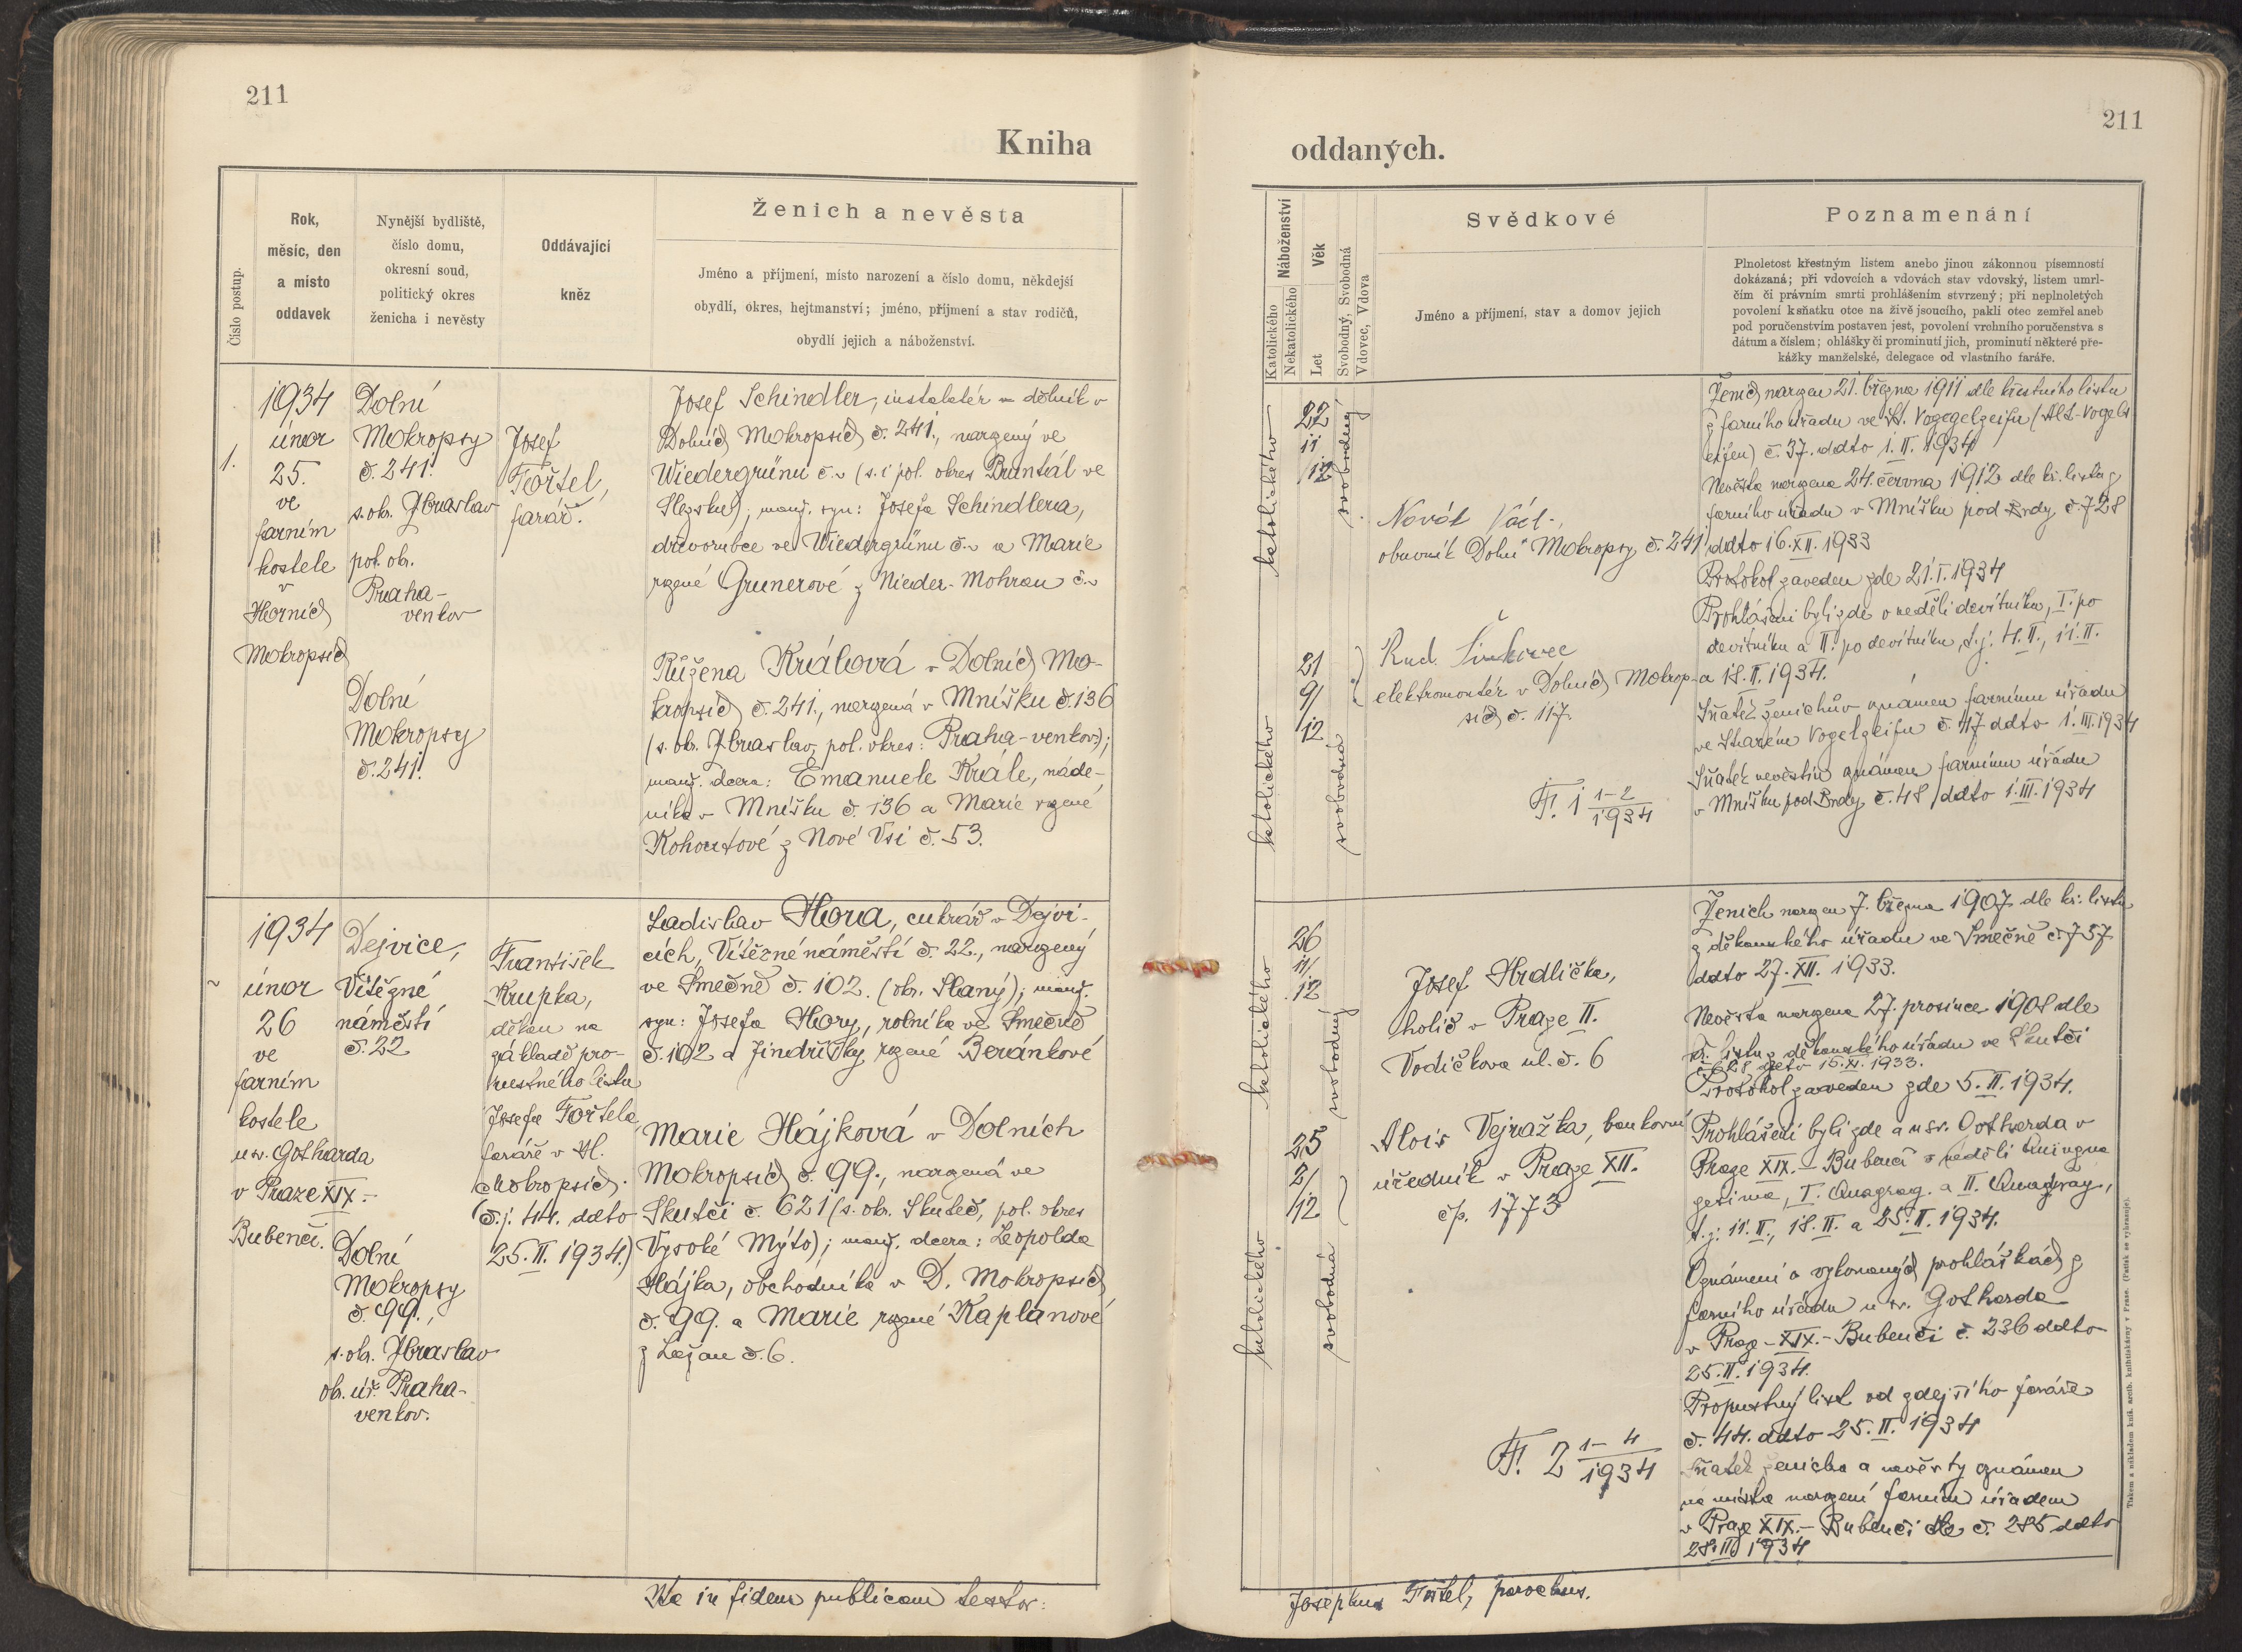 211
Kniha
Číslo postup.
Rok,
měsíc, den
a místo
oddavek
Nynější bydliště,
číslo domu,
okresní soud,
politický okres
ženicha i nevěsty
Oddávající
kněz
Ženich a nevěsta
Jméno a příjmení, místo narození a číslo domu, někdejší
obydlí, okres, hejtmanství; jméno, příjmení a stav rodičů,
obydlí jejich a náboženství.
1.
1934
únor
25.
ve
farním
kostele
v
Horních
Mokropsích
Dolní
Mokropsy
č. 241.
s. okr. Zbraslav
pol. okr.
Praha-
venkov
Dolní
Mokropsy
č. 241.
Josef
Fořtel,
farář.
Josef Schindler, instalatér - dělník v
Dolních Mokropsích č. 241., narozený ve
Wiedergrünu č. - (s. i pol. okres Bruntál ve
Slezsku); manž. syn: Josefa Schindlera,
dřevorubce ve Wiedergrünu č. - a Marie
rozené Grunerové z Nieder-Mohrau č. -
Růžena Králová v Dolních Mo-
kropsích č. 241., narozená v Mníšku č. 136
(s. okr. Zbraslav, pol. okres: Praha-venkov);
manž. dcera: Emanuele Krále, náde-
níka v Mníšku č. 136 a Marie rozené
Kohoutové z Nové Vsi č. 53.
~
1934
únor
26
ve
farním
kostele
u sv. Gotharda
v Praze XIX. -
Bubenči.
Dejvice,
Vítězné
náměstí
č. 22
Dolní
Mokropsy
č. 99.,
s. okr. Zbraslav
okr. úř. Praha-
venkov.
František
Krupka,
děkan na
základě pro-
pustného listu
Josefa Fořtela,
faráře v H.
Mokropsích.
(č. j. 44. ddto
25. II. 1934.)
Ladislav Hora, cukrář v Dejvi-
cích, Vítězné náměstí č. 22., narozený
ve Smečně č. 102. (okr. Slaný); manž.
syn: Josefa Hory, rolníka ve Smečně
č. 102 a Jindřišky rozené Beránkové
Marie Hájková v Dolních
Mokropsích č. 99., narozená ve
Skutči č. 621 (s. okr. Skuteč, pol. okres
Vysoké Mýto); manž. dcera: Leopolda
Hájka, obchodníka v D. Mokropsích
č. 99. a Marie rozené Kaplanové
z Ležan č. 6.
Ita in fidem publicam testor:
211
oddaných.
Náboženství
Katolického
Nekatolického
Věk
Let
Svobodný, Svobodná
Vdovec, Vdova
Svědkové
Jméno a příjmení, stav a domov jejich
Poznamenání
Plnoletost křestným listem anebo jinou zákonnou písemností
dokázaná; při vdovcích a vdovách stav vdovský, listem umrl-
čím či právním smrti prohlášením stvrzený; při neplnoletých
povolení k sňatku otce na živě jsoucího, pakli otec zemřel aneb
pod poručenstvím postaven jest, povolení vrchního poručenstva s
dátum a číslem; ohlášky či prominutí jich, prominutí některé pře-
kážky manželské, delegace od vlastního faráře.
katolického
22
11
/12
svobodný
Novák Václ.,
obuvník Dolní Mokropsy č. 241
katolického
21
9/
12
svobodná
Rud.
elektromontér v Dolních Mokrop-
sích č. 117.
F! 1 1-2
1934
Ženich narozen 21. března 1911 dle křestního listu
z farního úřadu ve St. Vogegelzeifu (Alt-Vogels
eifen) č. 37. ddto 1. II. 1934
Nevěsta narozena 24. června 1912 dle kř. listu z
farního úřadu v Mníšku pod Brdy č. 728
ddto 16. XII. 1933
Protokol zaveden zde 21. I. 1934
Prohlášeni byli zde o neděli devítníku, I. po
devítníku a II. po devítníku, t. j. 4. II., 11. II.
a 18. II. 1934.
Sňatek ženichův oznámen farnímu úřadu
ve Starém Vogelzeifu č. 47 ddto 1. III. 1934
Sňatek nevěstin oznámen farnímu úřadu
v Mníšku pod Brdy č. 48 ddto 1. III. 1934
katolického
26
11/
12
svobodný
Josef Hrdlička,
holič v Praze II.
Vodičkova ul. č. 6
katolického
25
2/
/12
svobodná
Alois Vejražka, bankovní
úředník v Praze XII.
čp. 1773
F! 2 1-4
1934
Ženich narozen 7. března 1907 dle kř. listu
z děkanského úřadu ve Smečně č. 737
ddto 27. XII. 1933.
Nevěsta narozena 27. prosince 1908 dle
kř. listu z děkanského úřadu ve Skutči
ddto 15. XI. 1933.
Protokol zaveden zde 5. II. 1934.
Prohlášeni byli zde a u sv. Gotharda v
Praze XIX. - Bubenči o neděli Quinqua
gesima, I. Quagrag. a II. Quagrag.,
t. j. 11. II., 18. II. a 25. II. 1934.
Oznámení o vykonaných prohláškách z
farního úřadu u sv. Gotharda
v Praze - XIX. - Bubenči č. 236 ddto
25. II. 1934.
Propustný list od zdejšího faráře
č. 44. ddto 25. II. 1934
Sňatek ženicha a nevěsty oznámen
na místa narození farním úřadem
v Praze XIX. - Bubenči č. 285 ddto
28. II. 1934
Tiskem a nákladem kníž. arcib. knihtiskárny v Praze. (Patisk se vyhrazuje).
Josephus Fořtel, parochus.